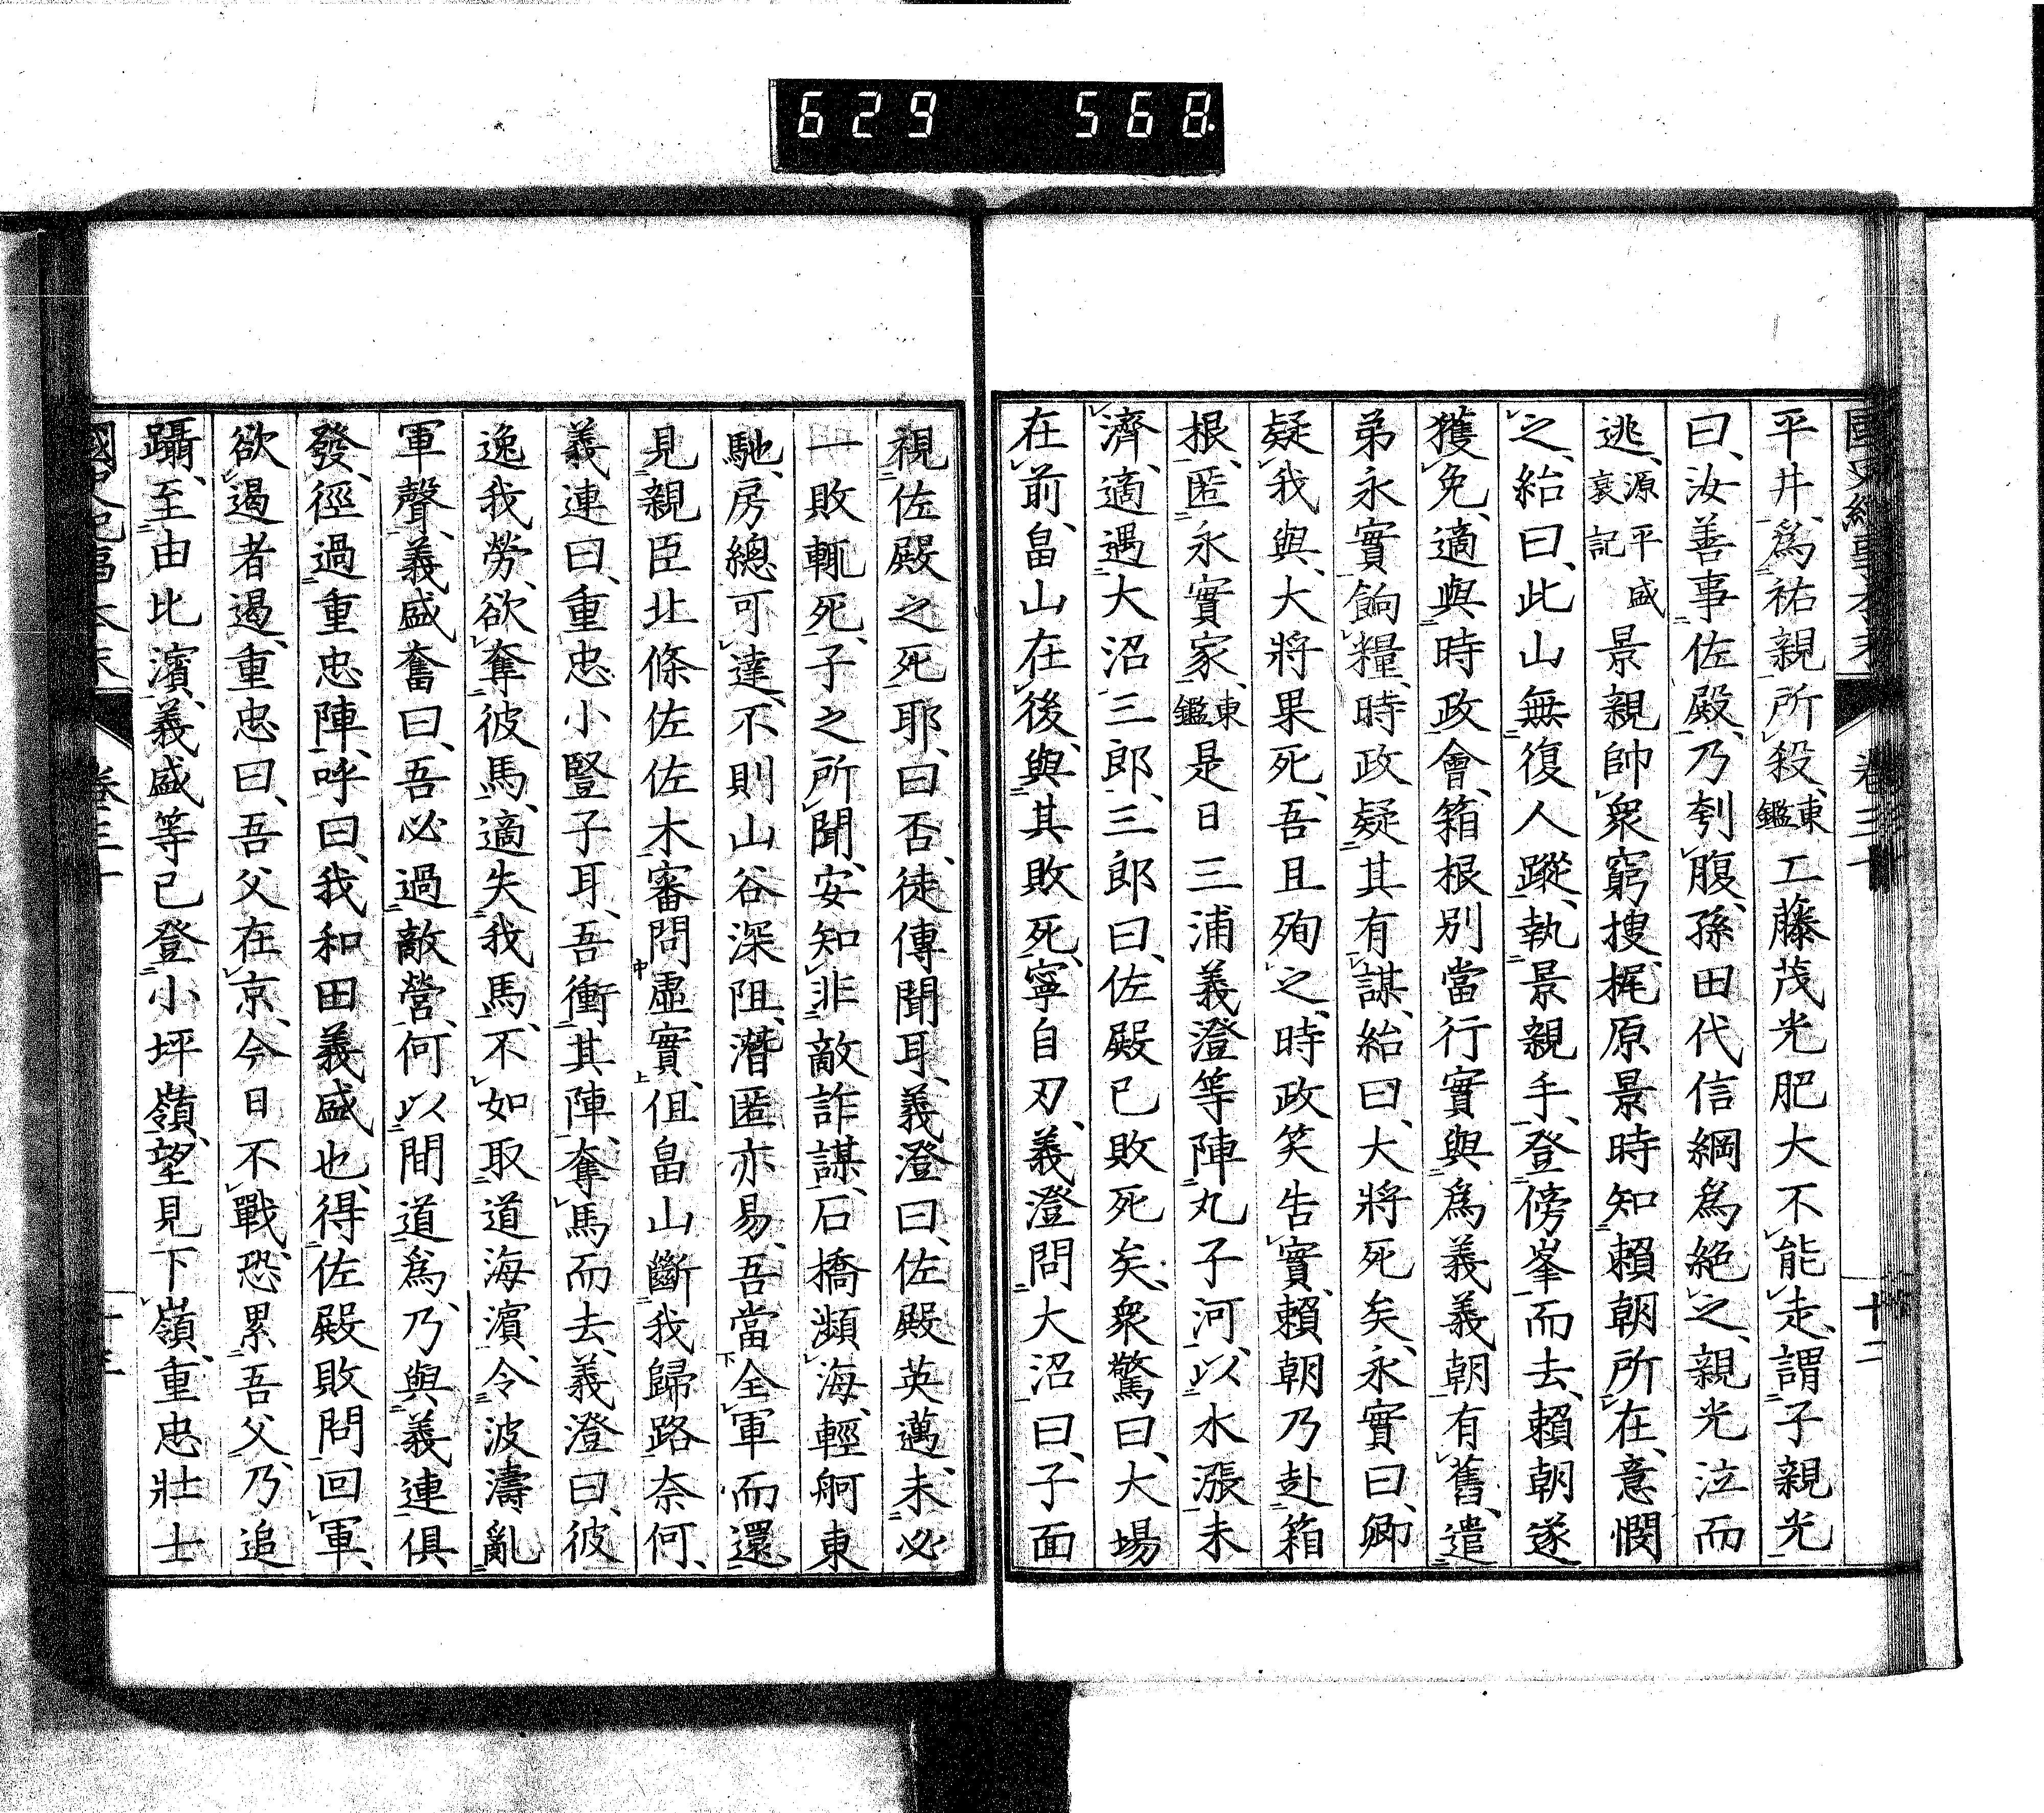 629 568
平井、爲祐親所殺、東鑑工藤茂光肥大不能走、謂子親光
曰、汝善事佐殿、乃刳腹、孫田代信綱爲絶之、親光泣而
逃、源平盛衰記景親帥衆窮搜、梶原景時知賴朝所在、意憫
之、紿曰、此山無復人蹤、執景親手、登傍峯而去、賴朝遂
獲免、適與時政會、箱根別當行實與爲義義朝有舊、遣
弟永實餉糧、時政疑其有謀、紿曰、大將死矣、永實曰、卿
疑我與、大將果死、吾且殉之、時政笑告實、賴朝乃赴箱
根、匿永實家、東鑑是日三浦義澄等陣丸子河、以水漲未
濟、適遇大沼三郎、三郎曰、佐殿已敗死矣、衆驚曰、大場
在前、畠山在後、與其敗死、寧自刃、義澄問大沼曰、子面
視佐殿之死耶、曰否、徒傳聞耳、義澄曰、佐殿英邁、未必
一敗輒死、子之所聞、安知非敵詐謀、石橋瀕海、輕舸東
馳、房總可達、不則山谷深阻、潛匿亦易、吾當全軍而還
見親臣北條佐佐木、審問虛實、但畠山斷我歸路奈何、
義連曰、重忠小豎子耳、吾衝其陣、奪馬而去、義澄曰、彼
逸我勞、欲奪彼馬、適失我馬、不如取道海濱、令波濤亂
軍聲、義盛奮曰、吾必過敵營、何以間道爲、乃與義連俱
發、徑過重忠陣、呼曰、我和田義盛也、得佐殿敗問回軍、
欲遏者遏、重忠曰、吾父在京、今日不戰、恐累吾父、乃追
躡、至由比濱、義盛等已登小坪嶺、望見下嶺、重忠壯士